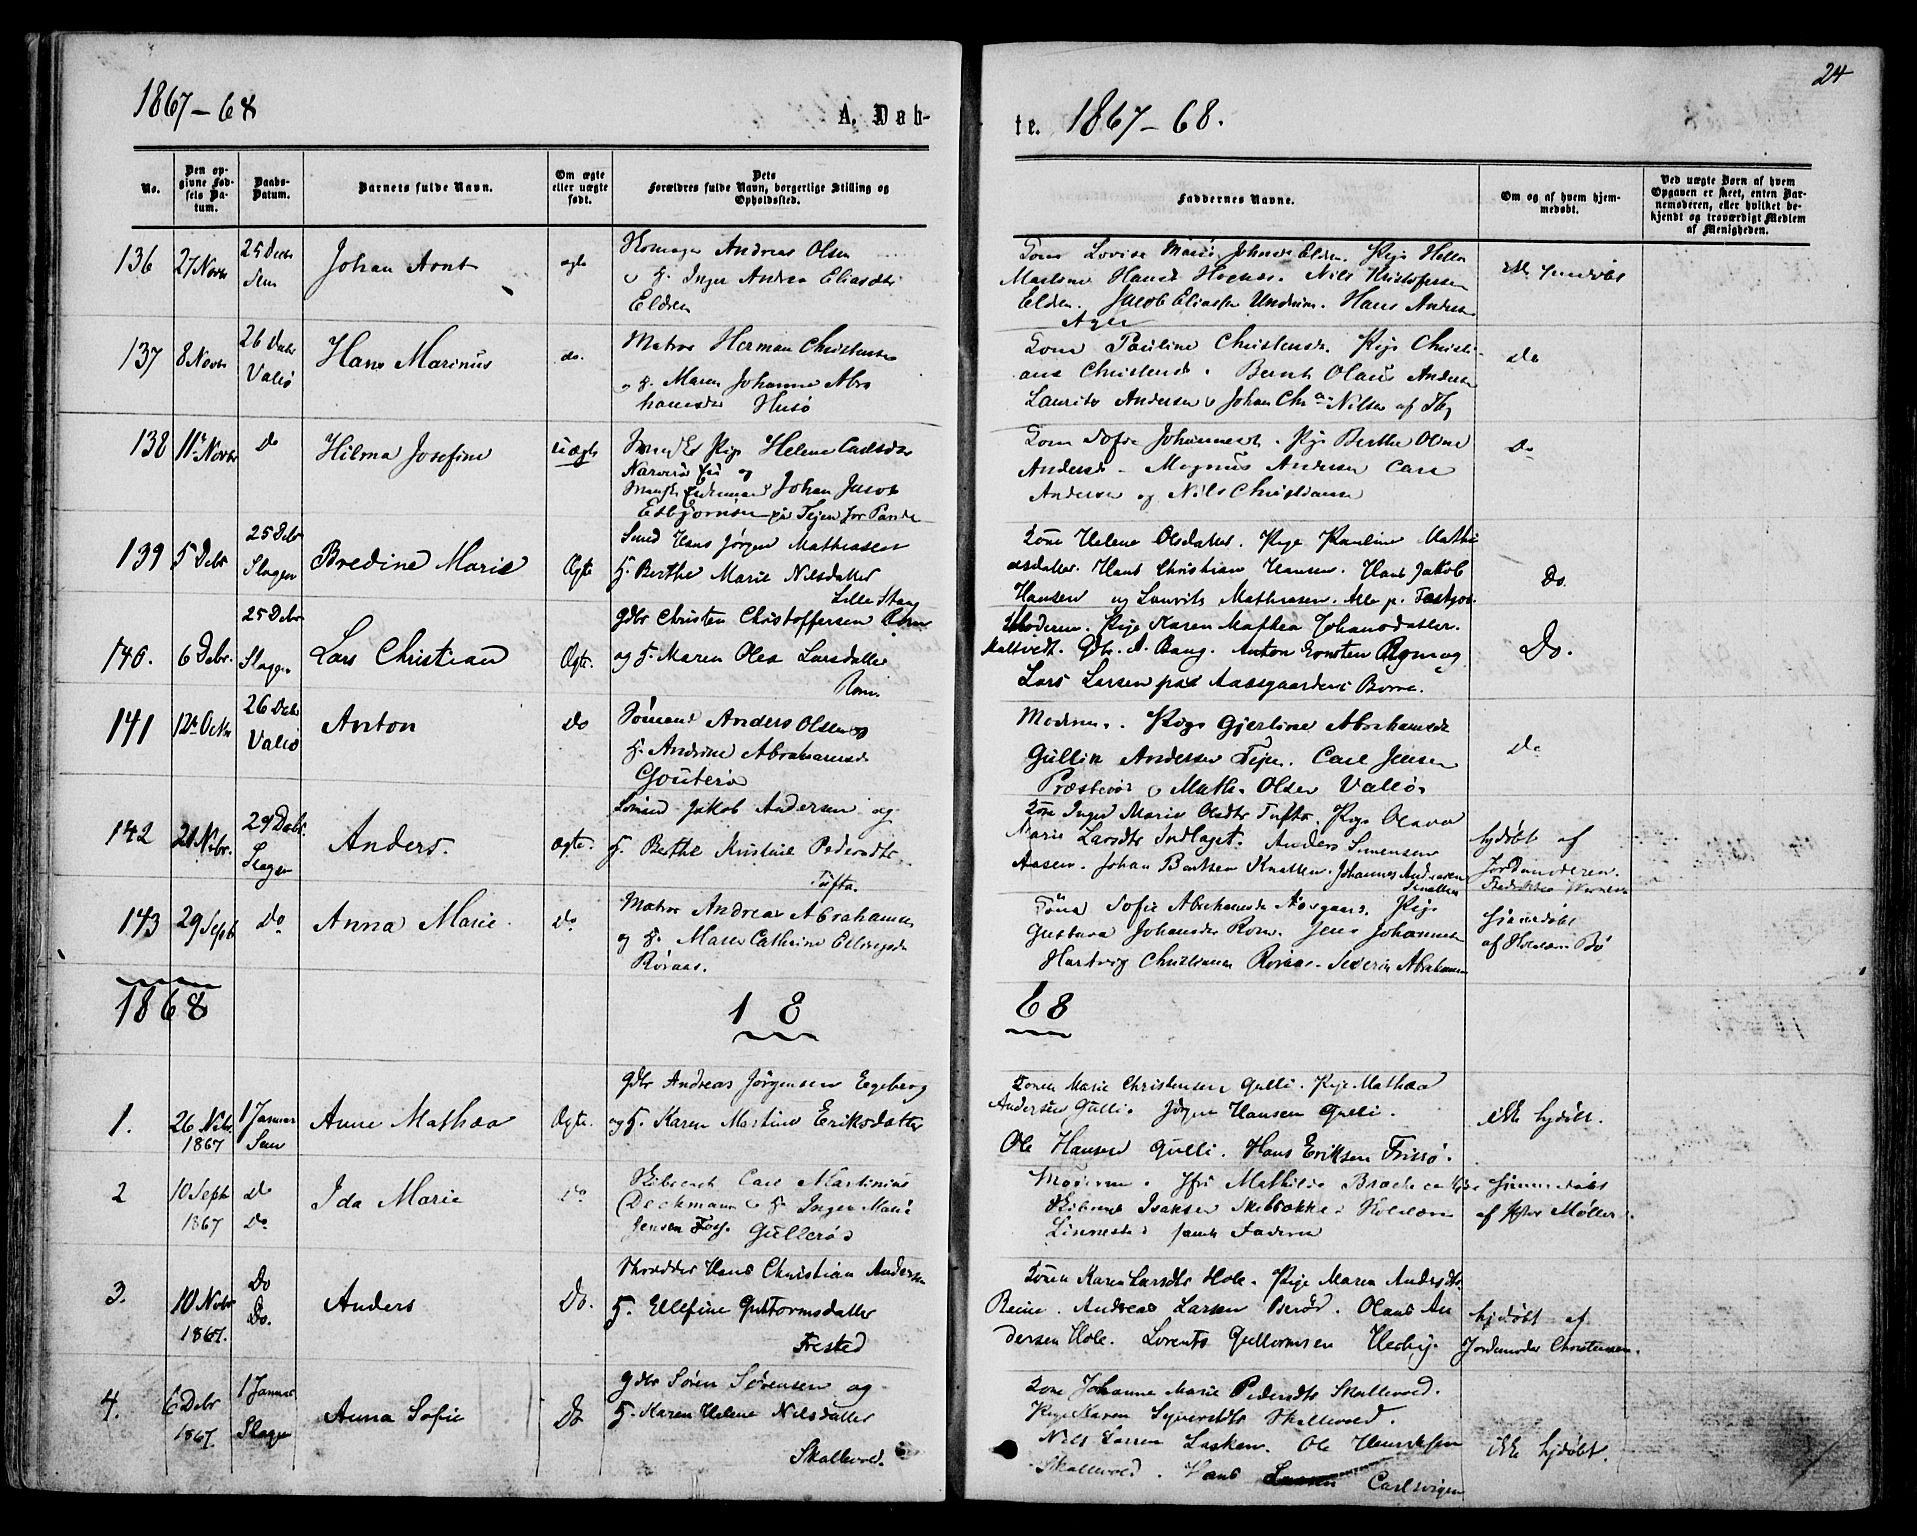 1867-68
A. Døb-
te. 1867-68.
24
No.
Den op-
givne Fød-
sels Da-
tum.
Daabs-
Datum.
Barnets fulde Navn.
Om ægte
eller uægte
født.
Dets
Forældres fulde Navn, borgerlige Stilling og
Opholdssted.
Faddernes Navne.
Om og af hvem hjem-
medøbt.
Ved uægte Børn af hvem
Opgaven er skeet, enten Bar-
nemoderen, eller hvilket be-
kjendt og troværdigt Medlem
af Menigheden.
136
27 Novbr
25 Decbr
Sem
Johan Arnt
ægte
Andreas Olsen
o H. Inger Andrea Eliasdtr
Elden
Kone Lovise Marie Johnsd Elden. Pige Helle
Hans Hognæs. Nils Kristoffersen
Elden. Jacob Eliassen Undrum. Hans Anders
137
8 Novbr
26 Decbr
Valø
Hans Marinus
do.
Matros Herman Christensen
o H. Maren Johanne Abra
hamsdr Husø
Kone Pauline Christensdr. Pige Christi-
ane Christensd. Bernt Olaus Andersen
Laurits Andersen o Johan Chr. Nilsen af Tbg
do
138
11te Novbr
Do
Hilma Josefine
Uægte
Pige Helene Carlsdtr
Narverø og
Johan Jacob
Esbjørnsen
Kone Sofie Johannesd. Pige Berthe Oline
Andersd. Magnus Andersen Carl
Andersen og Nils Christiansen
Do
139
5 Debr
25 Debr
Slagen
Bredine Marie
Ægte
Smed Hans Jørgen Mathiassen
H. Berthe Marie Nilsdatter
Lille Stang
Kone Helene Olsdatter. Pige Pauline Mathi
asdatter. Hans Christian Hansen. Hans Jakob
Hansen og Laurits Mathiasen. Alle p.
Do.
140.
6 Debr.
25 Debr
Slagen
Lars Christian
Ægte.
Gdbr Christen Christoffersen Rom
og H. Maren Olea Larsdatter
Rom.
Moderen. Pige Karen Mathea Johansdatter
Skaltvedt. Gbr. A. Bang. Anton Ernsten Rom og
Lars Larsen paa Aadsgaarden i Borre.
Do.
141
12te Octbr
26 Debr
Valø
Anton
Do
Sømand Anders Olsen og
H. Andrine Abrahamsdr
Gouterø
Moderen. Pige Gjertine Abrahamsdr
Gullik Andersen Teje. Carl Jensen
Præsterød o Math. Olsen Vallø.
Do
142
21 Nvbr.
29 Debr.
Slagen
Anders.
Ægte.
Sømand Jakob Andersen og
H. Berthe Kristine Pedersdtr
Tofta.
Kone Inger Marie Olsdtr Tofta. Pige Olava
Marie Larsdtr Indlaget. Anders Simensen
Aasen. Johan Berntsen Knatten. Johannes Andersen
hjdøbt af
Jordmoderen.
143
29 Septb
Do
Anna Marie.
Do
Matros Andreas Abrahamsen
og H. Maren Cathrine Ellingsdr
Roraas.
Kone Sofie Abrahamsd Aasgaard. Pige
Gustava Johansdtr Rom. Jens Johannesen
Hartvig Christiansen Roraas. Severin Abrahamsen
hjemmedøbt
af
1868
1 8
68
1.
26 Nvbr.
1867
1 Januar
Sem
Anne Mathea
Ægte.
Gdbr Andreas Jørgensen Egeberg
og H. Karen Martine Eriksdatter
Konen Marie Christensen Gulli. Pige Mathea
Andersen Gulli. Jørgen Hansen Gulli.
Ole Hansen Gulli. Hans Eriksen Frisø.
ikke hjdøbt.
2
10 Septb
1867
do
do
Ida Marie
Do
Carl Martinius
Deckmann o H. Inger Marie
Jensen Foss. Gullerød
Moderen. Jfr Mathilde
Isaksen
samt Faderen
hjemmedøbt
af Møller.
3.
10 Nvbr
1867.
Do
Do.
Anders
Do.
Skrædder Hans Christian Andersen
H. Ellefine Guttormsdatter
Frested
Konen Karen Larsdtr Hole. Pige Maren Andersdtr
Beine. Andreas Larsen Berød. Olaus An
dersen Hole. Lorents Guttormsen Heoby.
hjdøbt af
Jordemoder Christensen.
4.
6 Debr
1867.
1 Januar
Slagen
Anna Sofie
Do
Gdbr Søren Sørensen og
H. Karen Helene Nilsdatter
Skallevold.
Kone Johanne Marie Pedersdtr Skallevold.
Pige Karen Syversdtr Skallevold.
Nils Larsen Lasken. Ole Henriksen
Skallevold. Hans Carlsvigen
ikke hjdøbt.